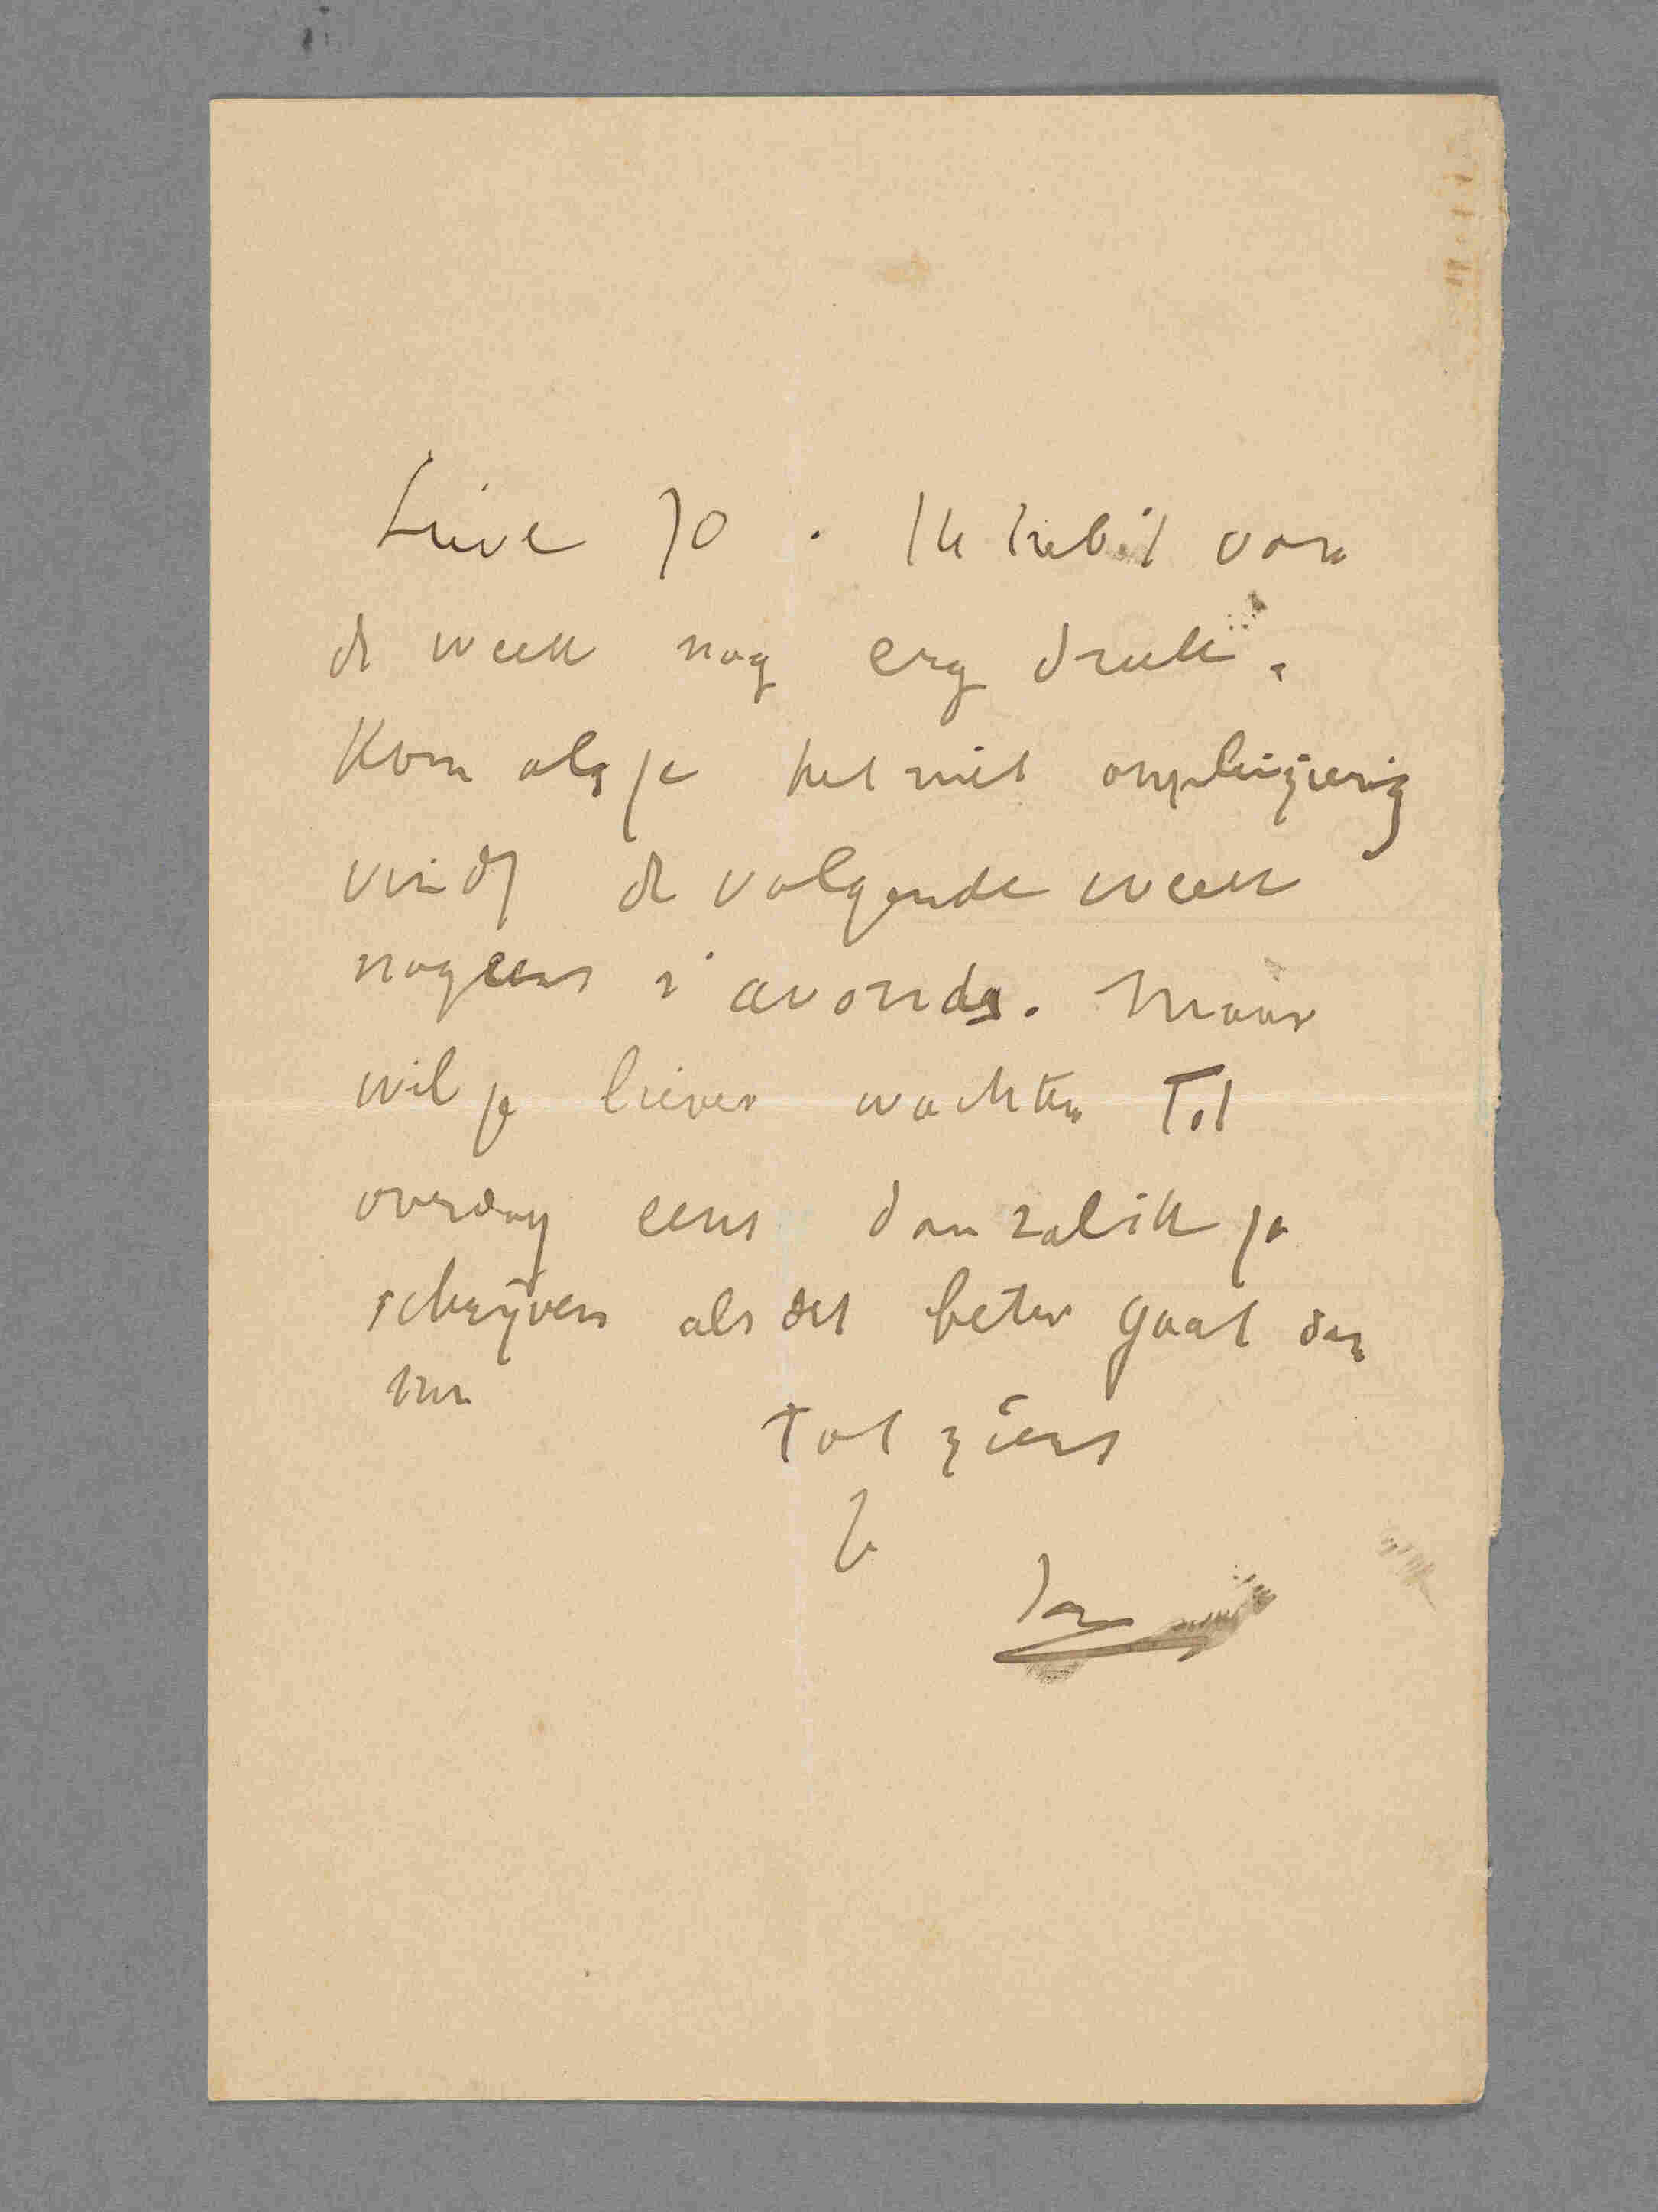 Lieve Jo. Ik heb it van
de week nog erg druk.
Kom als je het niet onpleizierig
vindt de volgende week
nog eens s' avonds. Maar
wil je liever wachten tot
overdag eens dan zal ik je
schrijven als dat beter gaat dan
nu
Tot ziens
Je
Jan